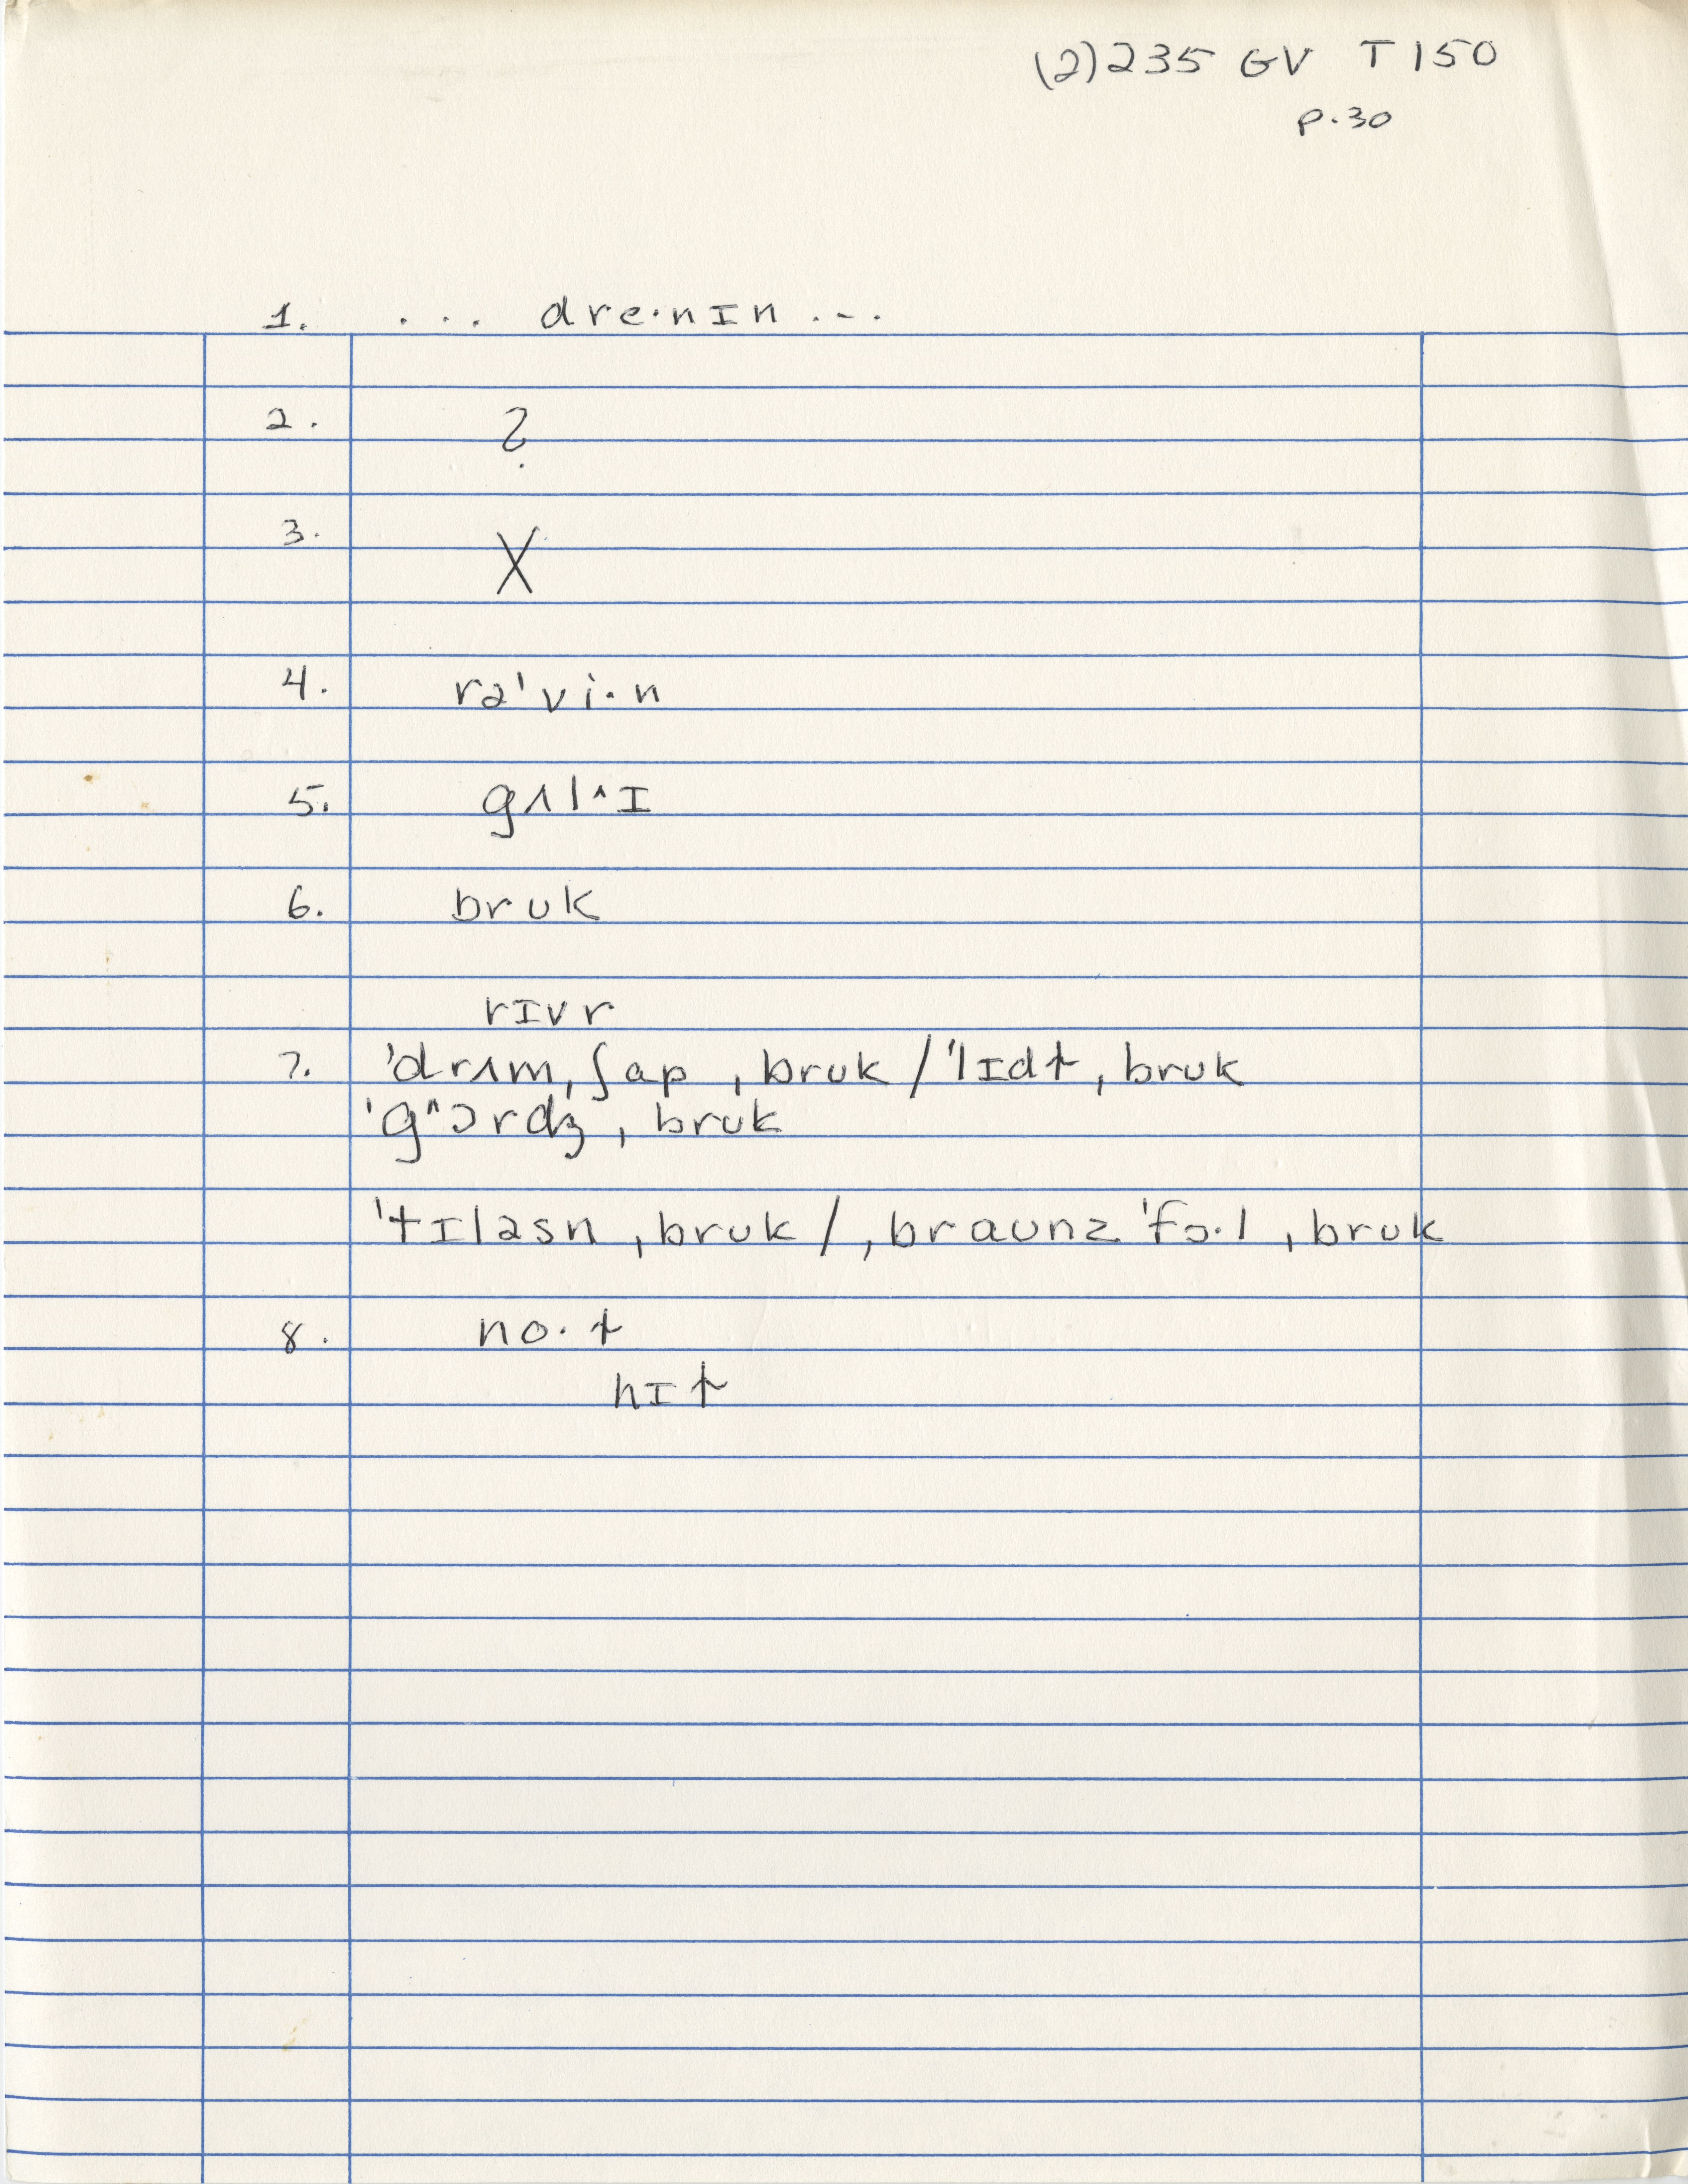 (2) 235 GV T150
p.30
1. ... dre·nɪn ...
2. ?
3. X
4. rə'vi·n
5. gʌl^ɪ
6. brʊk
rɪvr
7. 'drʌm,ʃap ,brʊk / 'lɪdt ,brʊk
'g^ɔrdʒ ,brʊk
'tɪləsn ,brʊk / ,braʊnz 'fɔ·l ,brʊk
8. no·t
hɪt